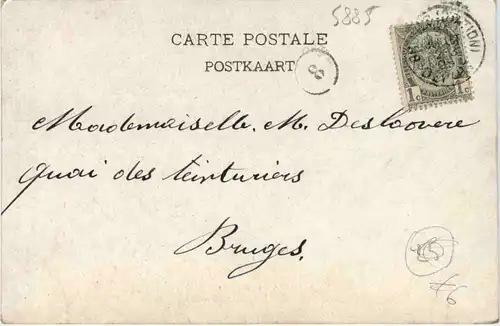 5885
CARTE POSTALE
POSTKAART
8
1c 1c
Mademoiselle. M. Desloovere
Quai des teinturiers
Bruges.